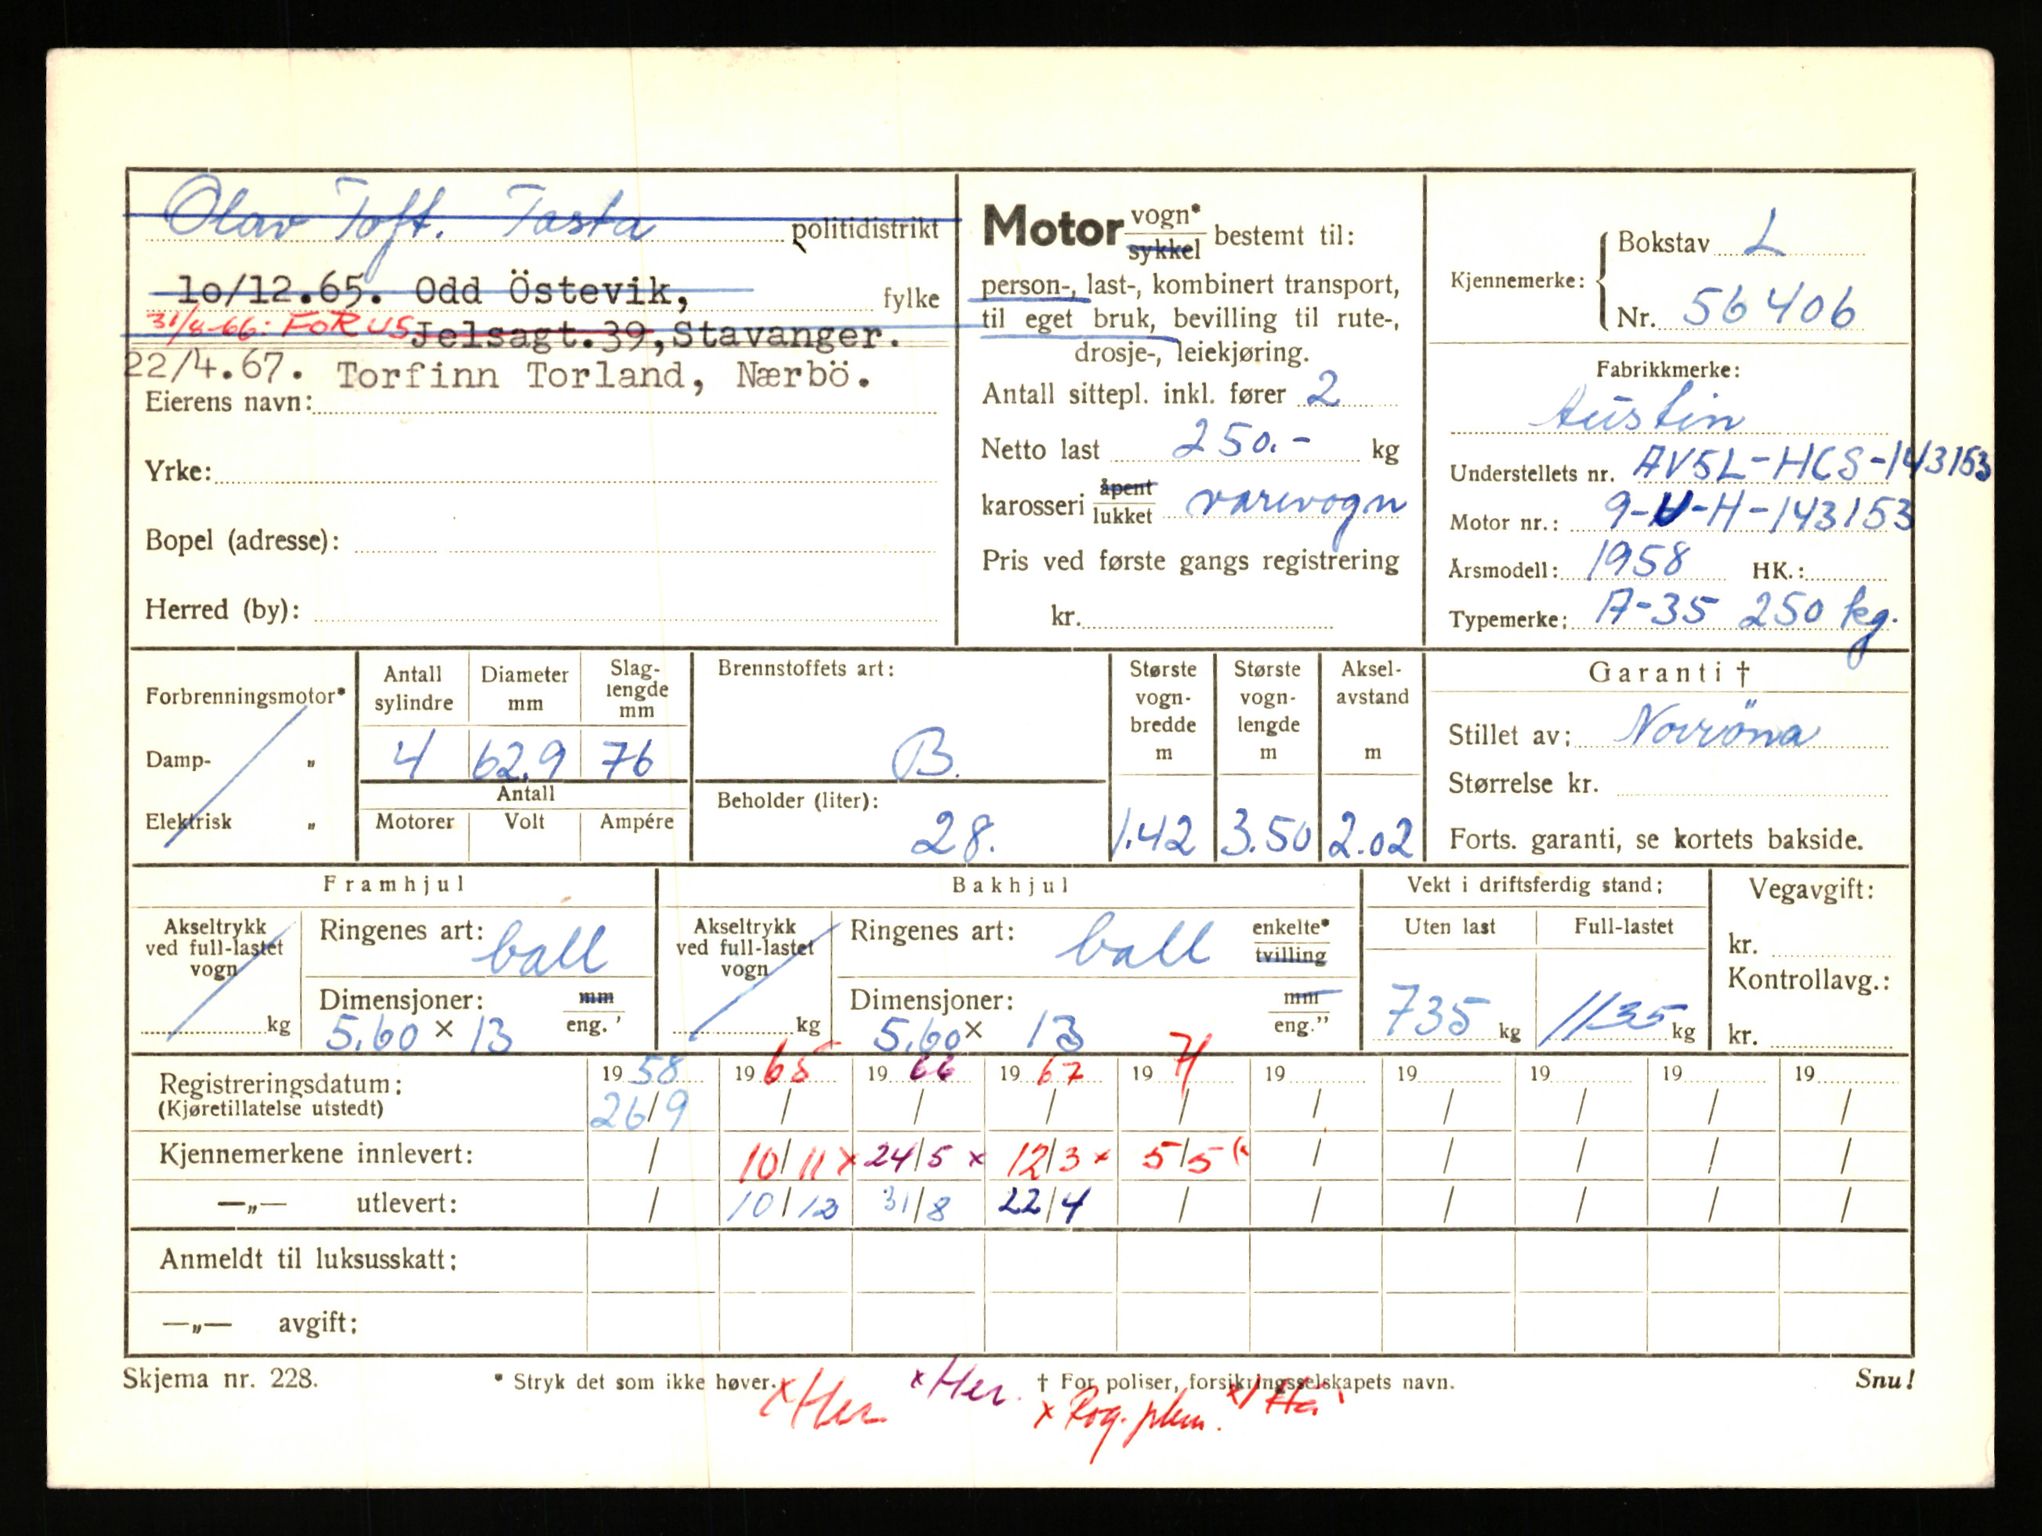 Olav Toft. Tasta politidistrikt
10/12.65. Odd Östevik, fylke
31/8-66: FORUS Jelsagt.39, Stavanger.
22/4.67. Torfinn Torland, Nærbö.
Eierens navn:
Yrke:
Bopel (adresse):
Herred (by):
Motor vogn* sykkel bestemt til:
person-, last-, kombinert transport,
til eget bruk, bevilling til rute-,
drosje-, leiekjøring.
Antall sittepl. inkl. fører 2
Netto last 250.- kg
karosseri åpent lukket varevogn
Pris ved første gangs registrering
kr.
Kjennemerke: Bokstav L
Nr. 56406
Fabrikkmerke:
Austin
Understellets nr. AV5L-HCS-143153
Motor nr.: 9-U-H-143153
Årsmodell: 1958 HK.:
Typemerke: A-35 250 kg.
Forbrenningsmotor*
Damp- „
Elektrisk „
Antall sylindre
Diameter mm
Slag-lengde mm
4 62.9 76
Antall
Motorer Volt Ampére
Brennstoffets art:
B.
Beholder (liter):
28.
Største vogn-bredde m
Største vogn-lengde m
Aksel-avstand m
1.42 3.50 2.02
Garanti †
Stillet av: Norröna
Størrelse kr.
Forts. garanti, se kortets bakside.
Framhjul
Akseltrykk ved full-lastet vogn
kg
Ringenes art: ball
Dimensjoner: mm eng.'
5.60 × 13
Bakhjul
Akseltrykk ved full-lastet vogn
kg
Ringenes art: ball enkelte* tvilling
Dimensjoner: mm eng."
5.60 × 13
Vekt i driftsferdig stand:
Uten last Full-lastet
735 kg 1135 kg
Vegavgift:
kr.
Kontrollavg.:
kr.
Registreringsdatum: 1958 1965 1966 1967 1971 19 19 19 19 19
(Kjøretillatelse utstedt) 26/9 / / / / / / / / /
Kjennemerkene innlevert: / 10/11 x 24/5 x 12/3 x 5/5 (x / / / / /
—„— utlevert: / 10/12 31/8 22/4 / / / / / /
Anmeldt til luksusskatt:
—„— avgift:
Skjema nr. 228. * Stryk det som ikke høver. † For poliser, forsikringsselskapets navn. Snu!
x Her x Her. x Rog. plm.